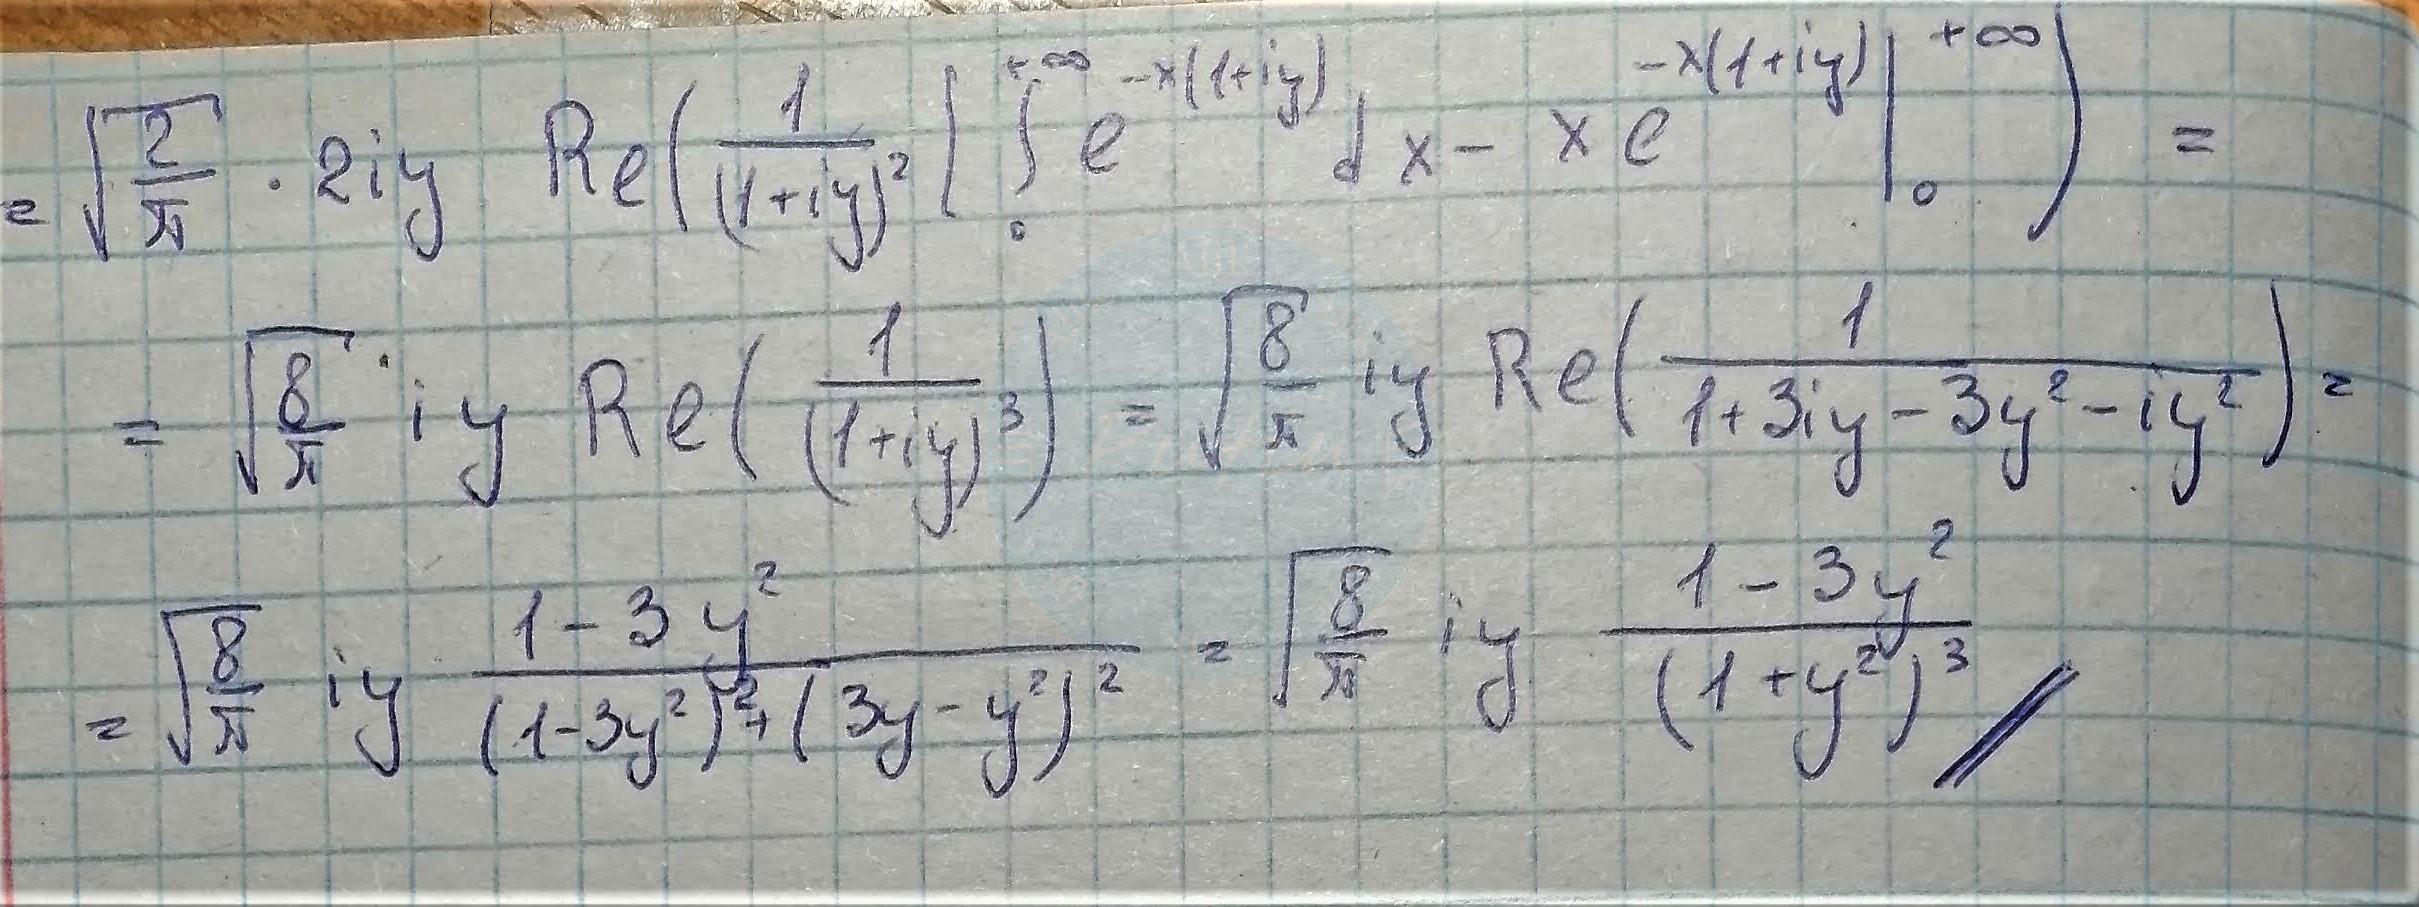 = √(2/π) · 2iy Re(1/(1+iy)² | ∫₀^{+∞} e^{-x(1+iy)} dx - x e^{-x(1+iy)} |₀^{+∞}) =
= √(8/π) · iy Re(1/(1+iy)³) = √(8/π) iy Re(1/(1+3iy-3y²-iy²)) =
= √(8/π) iy (1-3y²)/((1-3y²)²+(3y-y²)²) = √(8/π) iy (1-3y²)/(1+y²)³ //